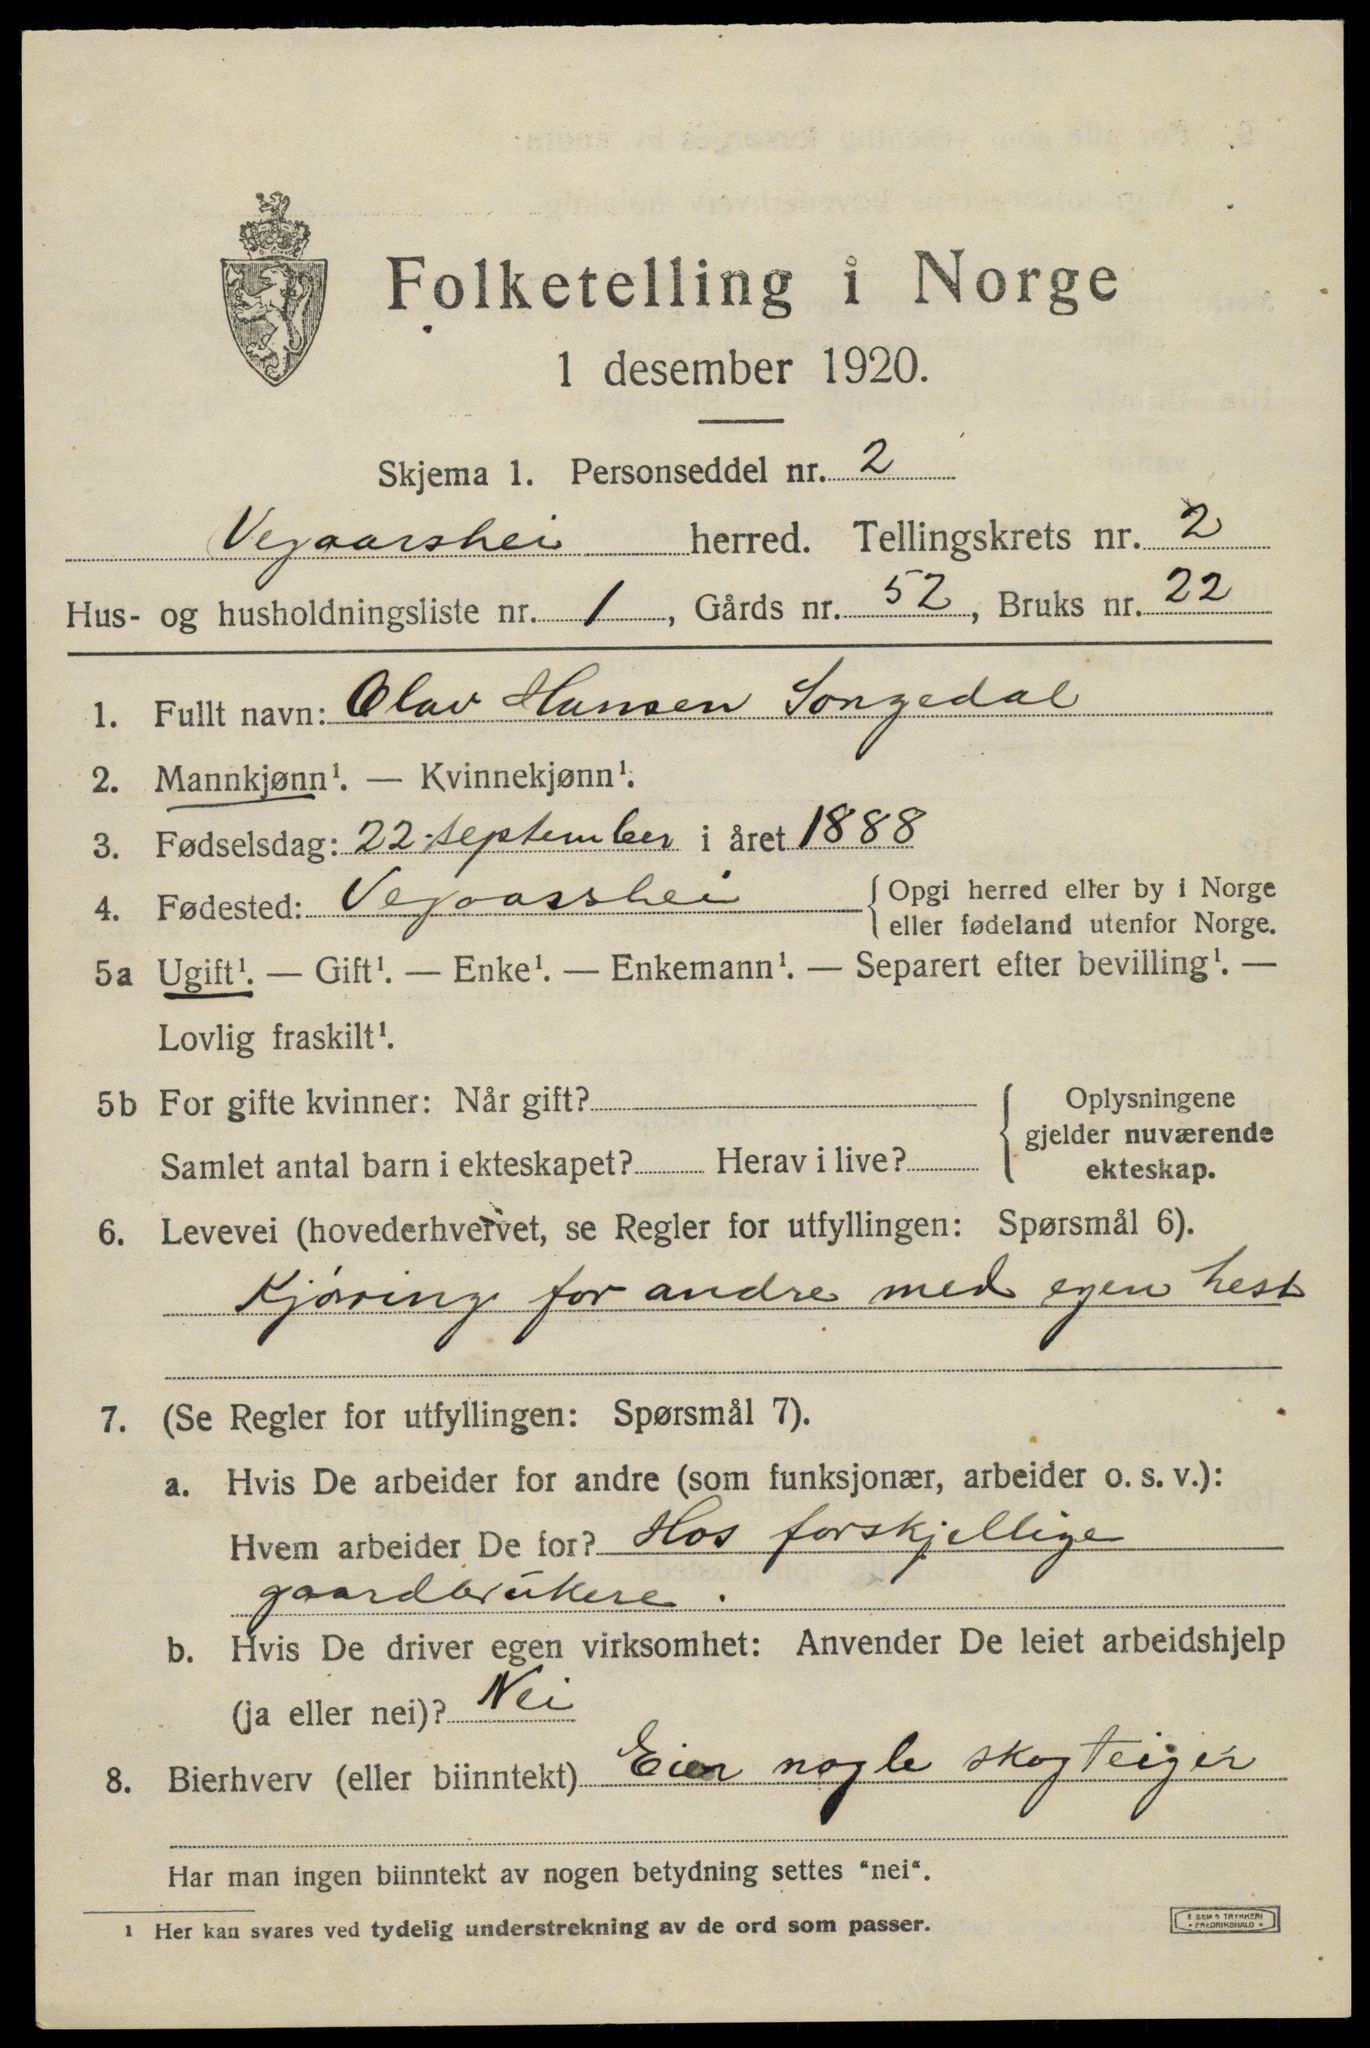 Folketelling i Norge
1 desember 1920.
Skjema 1. Personseddel nr. 2
Vegaarshei herred. Tellingskrets nr. 2
Hus- og husholdningsliste nr. 1, Gårds nr. 52, Bruks nr. 22
1. Fullt navn: Olav Hansen Songedal
2. Mannkjønn¹. — Kvinnekjønn¹.
3. Fødselsdag: 22 september i året 1888
4. Fødested: Vegaarshei { Opgi herred eller by i Norge
eller fødeland utenfor Norge.
5a Ugift¹. — Gift¹. — Enke¹. — Enkemann¹. — Separert efter bevilling¹. —
Lovlig fraskilt¹.
5b For gifte kvinner: Når gift? { Oplysningene
gjelder nuværende
Samlet antal barn i ekteskapet? Herav i live?
ekteskap.
6. Levevei (hovederhvervet, se Regler for utfyllingen: Spørsmål 6).
Kjøring for andre med egen hest
7. (Se Regler for utfyllingen: Spørsmål 7).
a. Hvis De arbeider for andre (som funksjonær, arbeider o. s. v.):
Hvem arbeider De for? Hos forskjellige
gaardbrukere.
b. Hvis De driver egen virksomhet: Anvender De leiet arbeidshjelp
(ja eller nei)? Nei
8. Bierhverv (eller biinntekt) Eier nogle skogteiger
Har man ingen biinntekt av nogen betydning settes "nei".
1 Her kan svares ved tydelig understrekning av de ord som passer.
E SEM'S TRYKKERI
FREDRIKSHALD